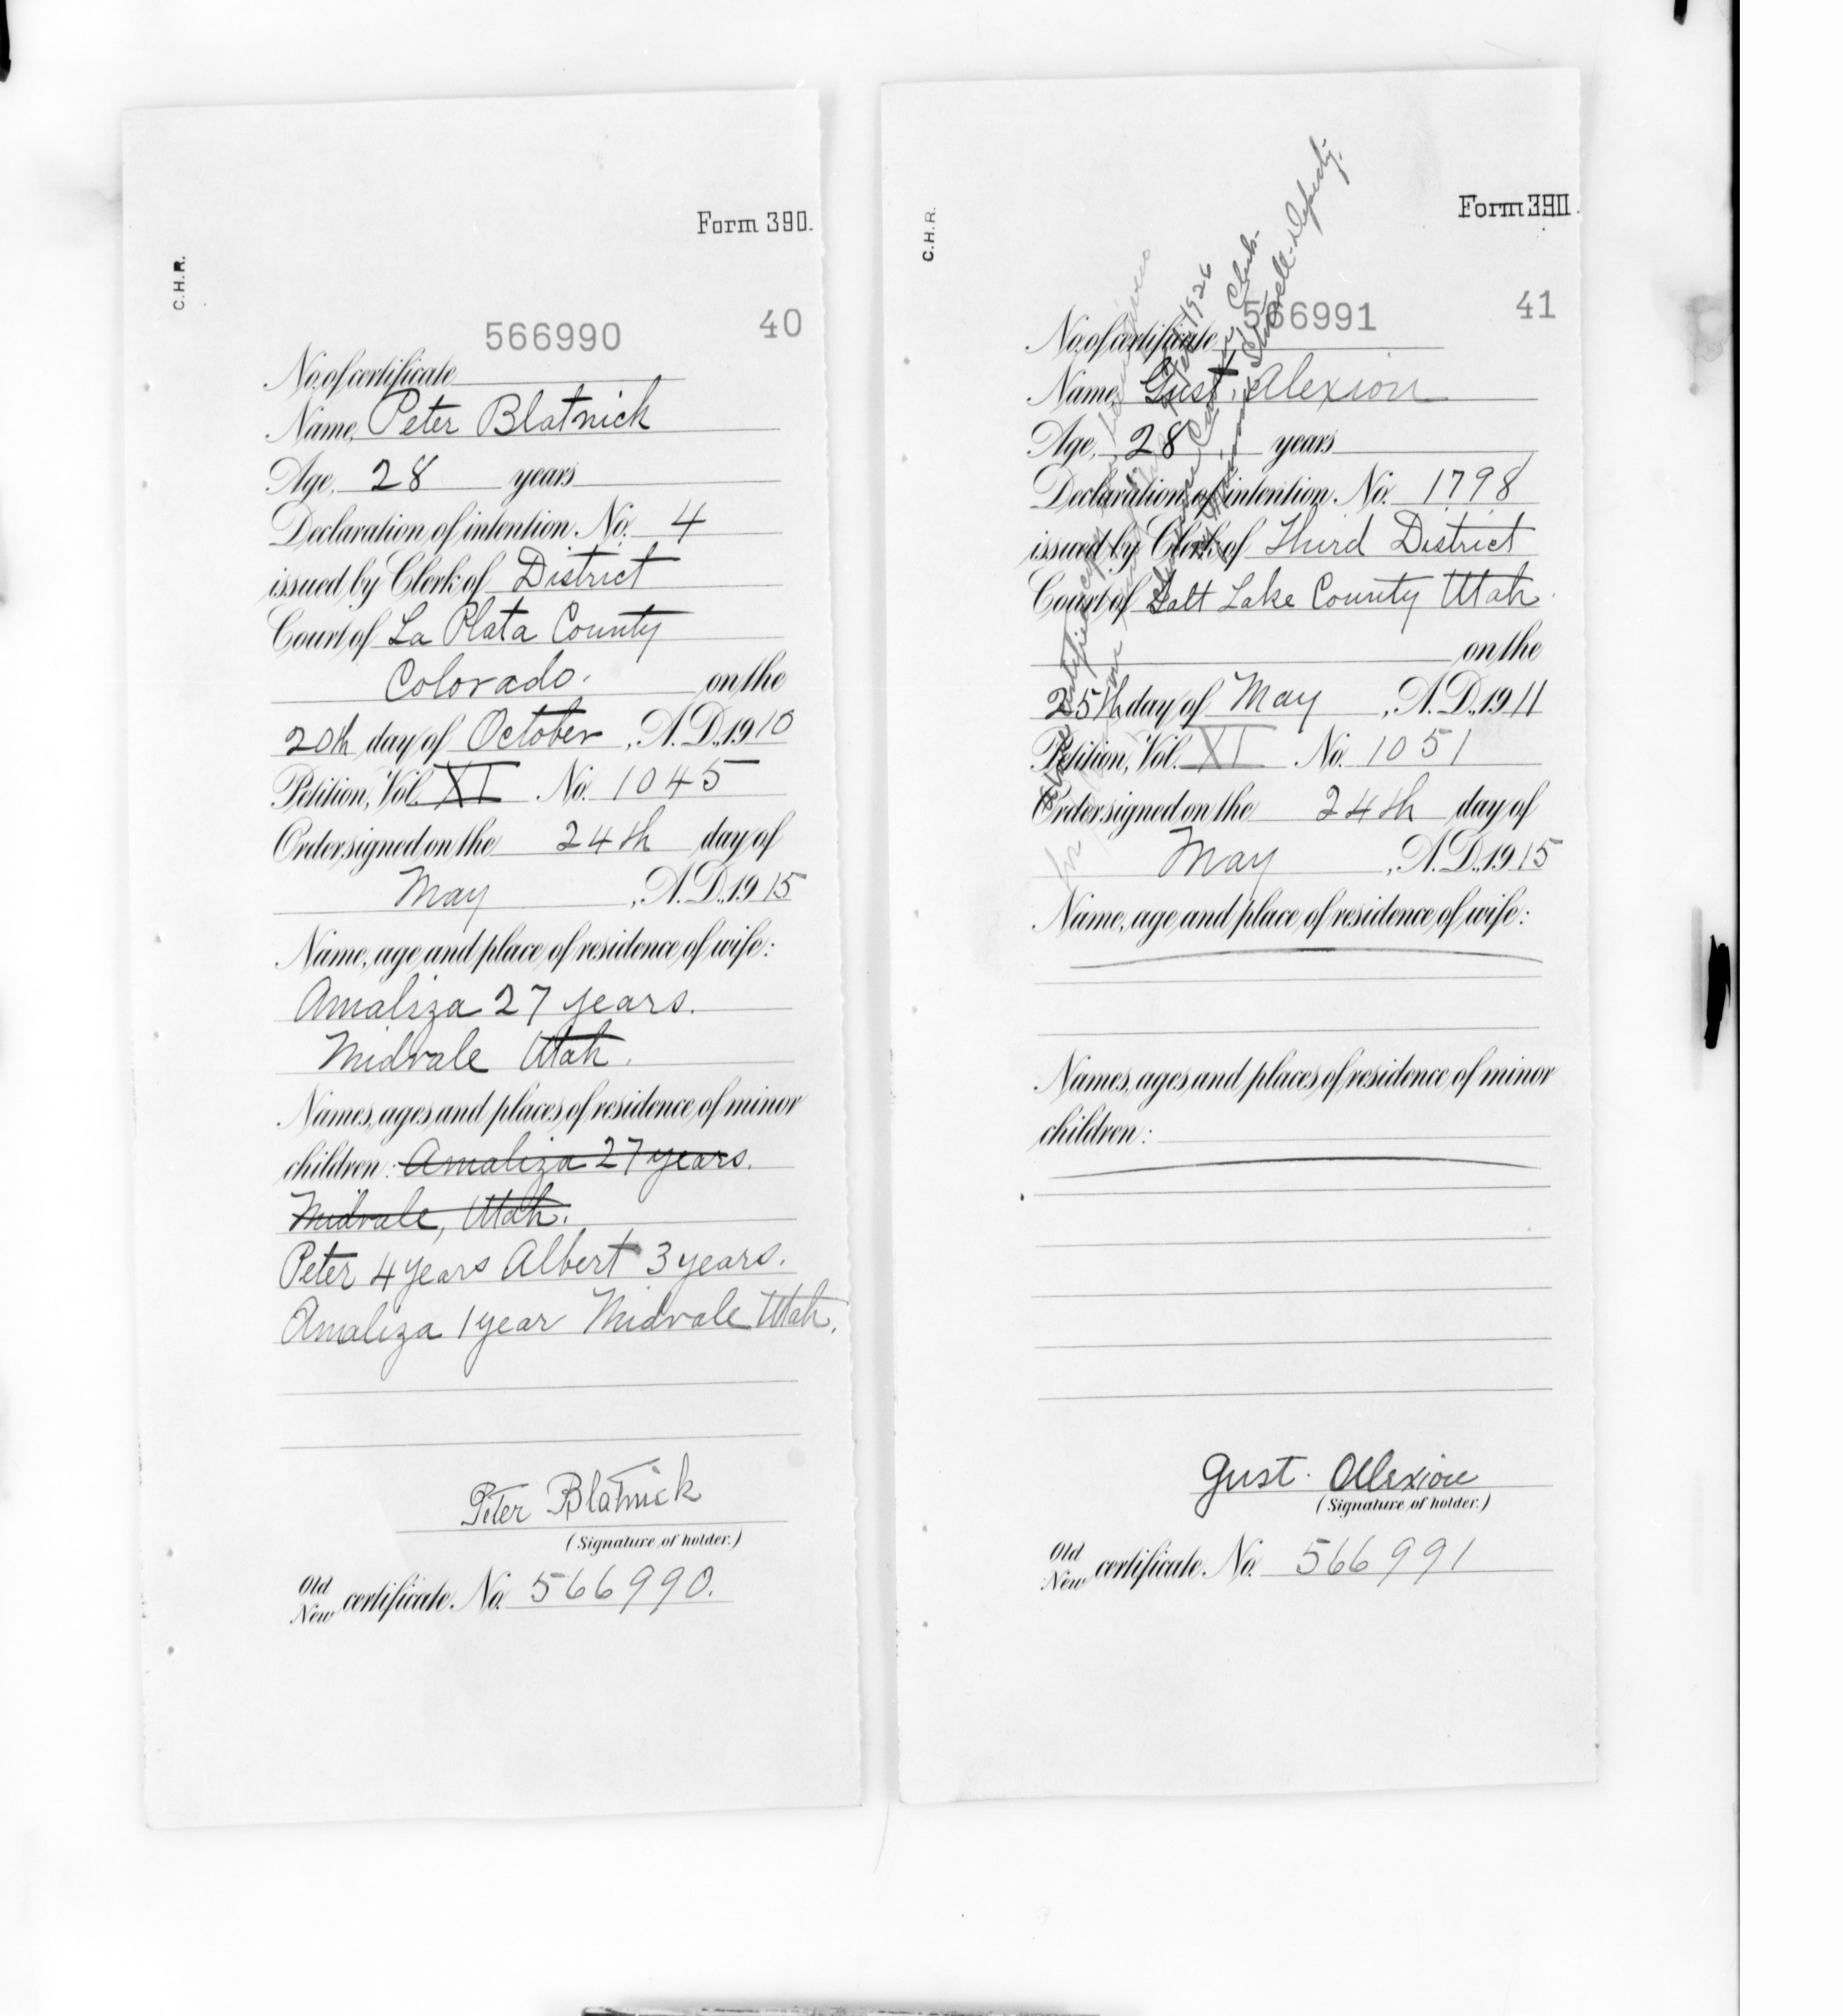 Form 390.
C.H.R.
566990 40
No. of certificate
Name, Peter Blatnick
Age, 28 years
Declaration of intention No. 4
issued by Clerk of District
Court of La Plata County
Colorado. on the
20th day of October, A.D. 1910
Petition, Vol. XI No. 1045
Order signed on the 24th day of
May, A.D. 1915
Name, age and place of residence of wife:
Amaliza 27 years.
Midvale Utah.
Names, ages and places of residence of minor
children: Amaliza 27 years.
Midvale, Utah.
Peter 4 years Albert 3 years.
Amaliza 1 year Midvale Utah.
Peter Blatnick
(Signature of holder.)
Old
New certificate No. 566990.
Form 390.
C.H.R.
566991 41
No. of certificate
Name, Gust. Alexiou
Age, 28 years
Declaration of intention No. 1798
issued by Clerk of Third District
Court of Salt Lake County Utah.
on the
25th day of May, A.D. 1911
Petition, Vol. XI No. 1051
Order signed on the 24th day of
May, A.D. 1915
Name, age and place of residence of wife:
Names, ages and places of residence of minor
children:
Gust. Alexiou
(Signature of holder.)
Old
New certificate No. 566991
1926
Clerk.
Deputy.